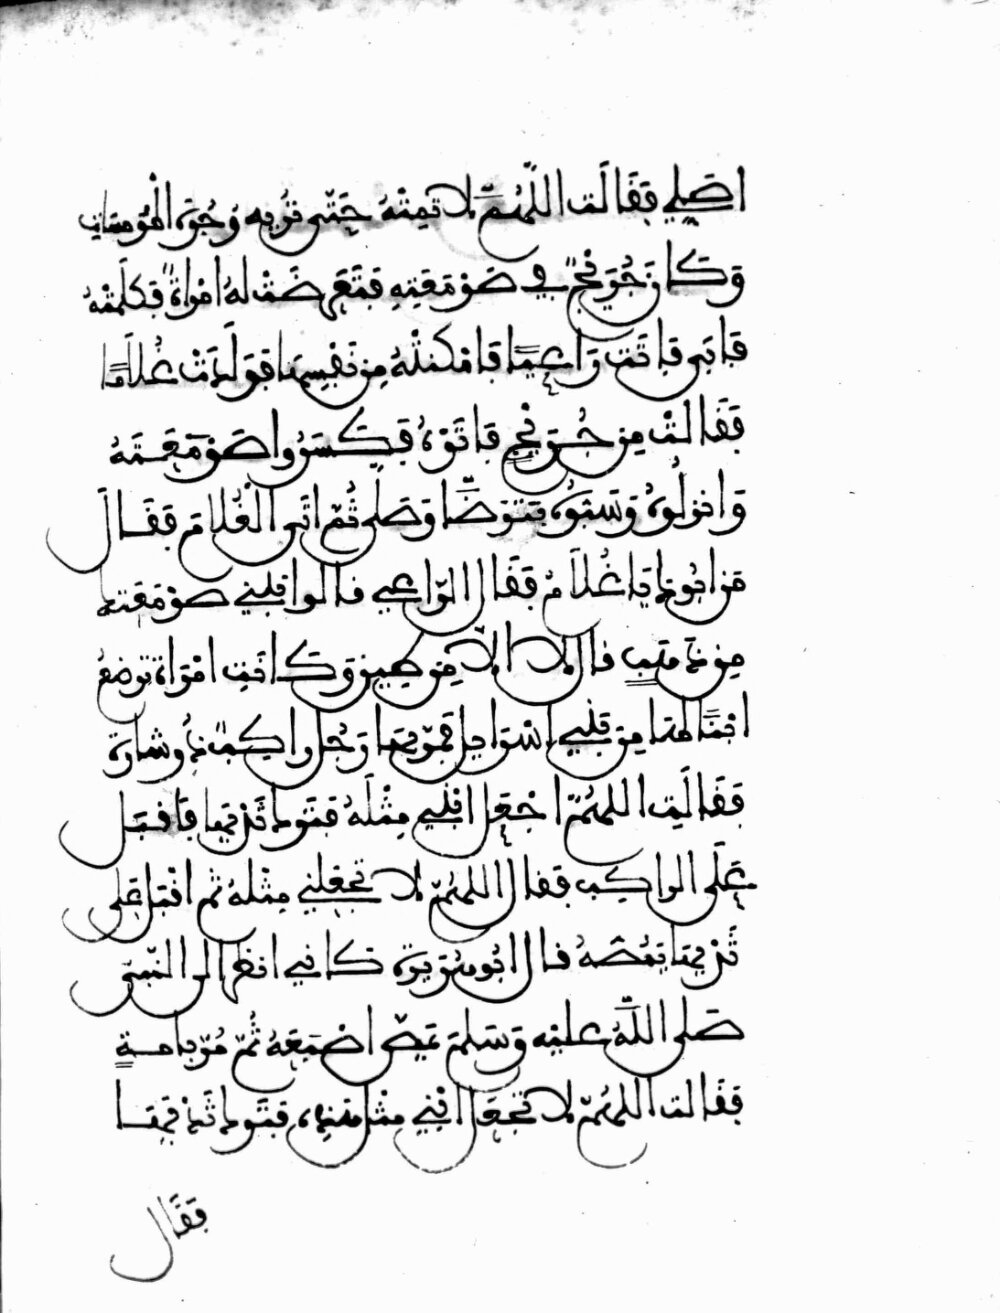 اصلي فقالت اللهم لا تمته حتى تريه وجوه المومسات
وكان جريج في صومعته فتعرضت له امرأة فكلمته
فابى فاتت راعيا فامكنته من نفسها فولدت غلاما
فقالت من جريج فاتوه فكسروا صومعته
وانزلوه وسبوه فتوضا وصلى ثم اتى الغلام فقال
من ابوك يا غلام فقال الراعي قالوا نبني صومعتك
من ذهب قال لا الا من طين وكانت امراة ترضع
ابنا لها من بني اسراءيل فمر بها رجل راكب ذو شارة
فقالت اللهم اجعل ابني مثله فترك ثديها فاقبل
على الراكب فقال اللهم لا تجعلني مثله ثم اقبل على
ثديها يمصه قال ابو هريرة كاني انظر الى النبي
صلى الله عليه وسلم يمص اصبعه ثم مر بامة
فقالت اللهم لا تجعل ابني مثل هذه فترك ثديها
فقال